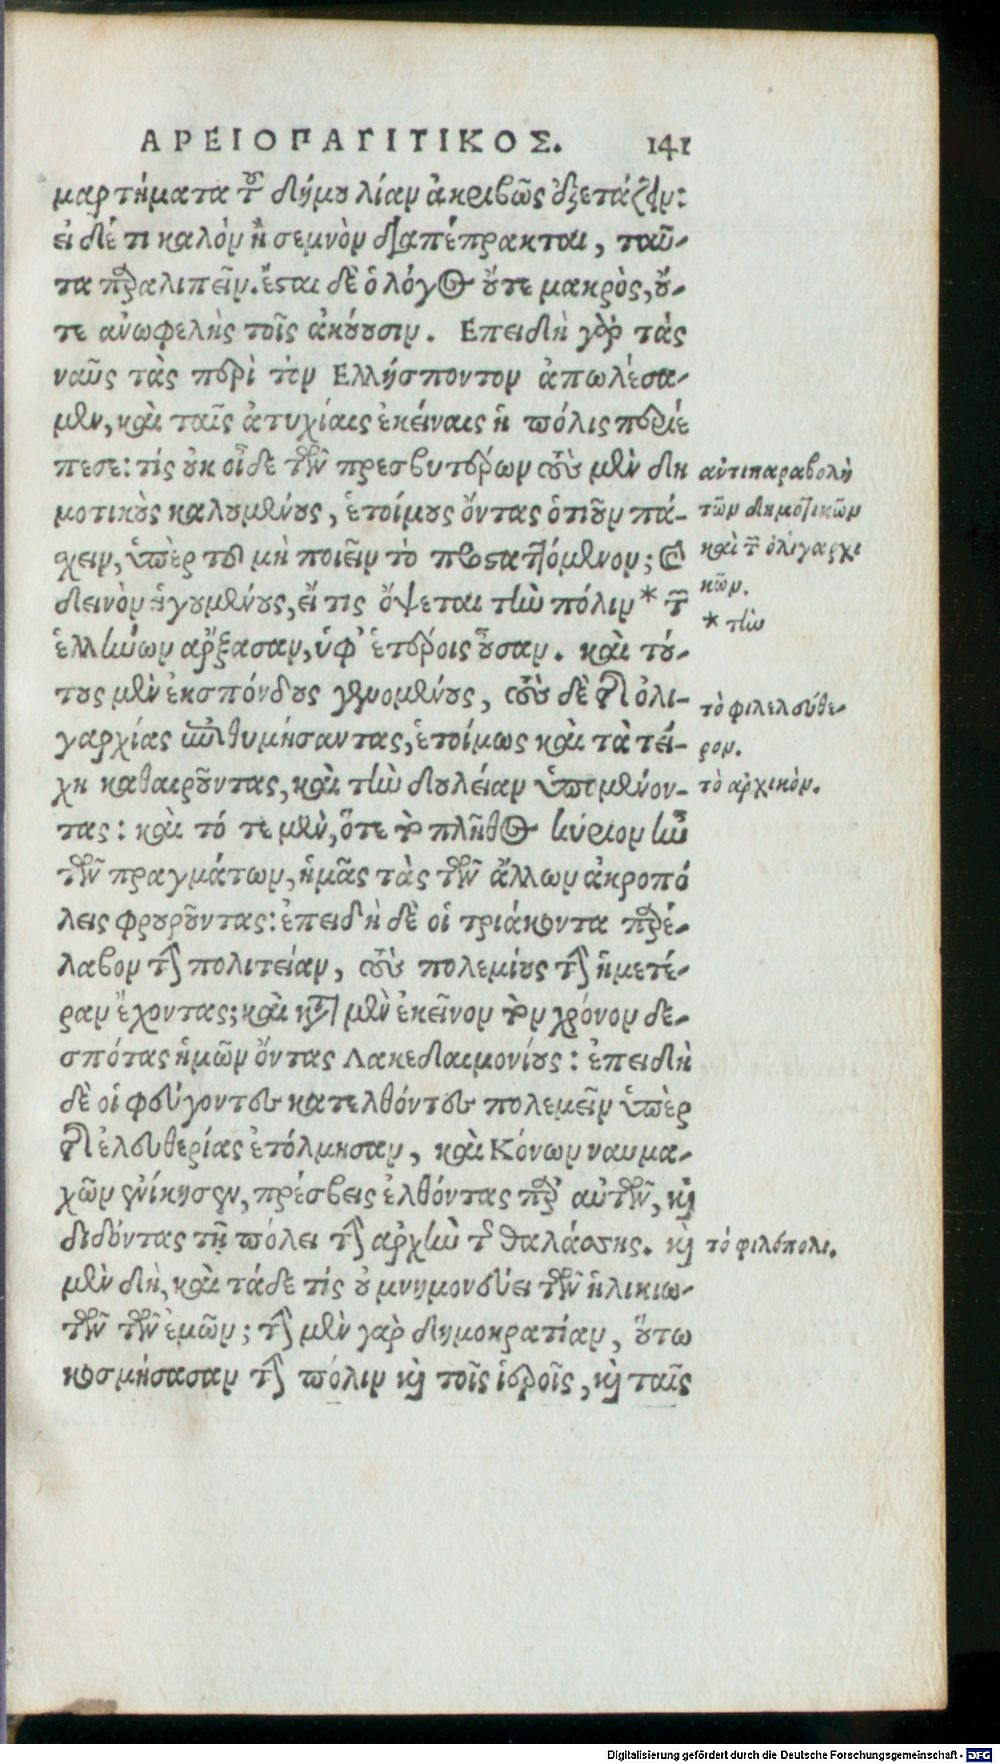 ΑΡΕΙΟΠΑΓΙΤΙΚΟΣ. 141
μαρτήματα τοῦ δήμου λίαν ἀκριβῶς ἐξετάζειν:
εἰ δέ τι καλὸν ἢ σεμνὸν διαπέπρακται, ταῦ-
τα παραλιπεῖν. ἔσται δὲ ὁ λόγος οὔτε μακρὸς, οὔ-
τε ἀνωφελὴς τοῖς ἀκούουσιν. Επειδὴ γὰρ τὰς
ναῦς τὰς περὶ τὸν Ελλήσποντον ἀπωλέσα-
μεν, καὶ ταῖς ἀτυχίαις ἐκείναις ἡ πόλις περιέ
πεσε: τίς οὐκ οἶδε τῶν πρεσβυτέρων τοὺς μὲν δη
μοτικοὺς καλουμένους, ἑτοίμους ὄντας ὁτιοῦν πά-
σχειν, ὑπὲρ τοῦ μὴ ποιεῖν τὸ προσταττόμενον; καὶ
δεινὸν ἡγουμένους, εἴ τις ὄψεται τὴν πόλιν* τῶν
ἑλλήνων ἄρξασαν, ὑφ' ἑτέροις οὖσαν. καὶ τού-
τους μὲν ἐκσπόνδους γενομένους, τοὺς δὲ τῆς ὀλι-
γαρχίας ἐπιθυμήσαντας, ἑτοίμως καὶ τὰ τεί-
χη καθαιροῦντας, καὶ τὴν δουλείαν ὑπομένον-
τας: καὶ τό τε μὲν, ὅτε τὸ πλῆθος κύριον ἦν
τῶν πραγμάτων, ἡμᾶς τὰς τῶν ἄλλων ἀκροπό
λεις φρουροῦντας: ἐπειδὴ δὲ οἱ τριάκοντα παρέ-
λαβον τὴν πολιτείαν, τοὺς πολεμίους τὴν ἡμετέ-
ραν ἔχοντας; καὶ κατὰ μὲν ἐκεῖνον τὸν χρόνον δε-
σπότας ἡμῶν ὄντας Λακεδαιμονίους: ἐπειδὴ
δὲ οἱ φεύγοντες κατελθόντες πολεμεῖν ὑπὲρ
τῆς ἐλευθερίας ἐτόλμησαν, καὶ Κόνων ναυμα-
χῶν ἐνίκησεν, πρέσβεις ἐλθόντας παρ' αὐτῶν, καὶ
διδόντας τῇ πόλει τὴν ἀρχὴν τῆς θαλάσσης. καὶ
μὲν δὴ, καὶ τάδε τίς οὐ μνημονεύει τῶν ἡλικιω-
τῶν τῶν ἐμῶν; τὴν μὲν γὰρ δημοκρατίαν, οὕτω
κοσμήσασαν τὴν πόλιν καὶ τοῖς ἱεροῖς, καὶ ταῖς
ἀντιπαραβολὴ
τῶν δημοτικῶν
καὶ τῶν ὀλιγαρχι
κῶν.
* τὴν
τὸ φιλελεύθε-
ρον.
τὸ ἀρχικὸν.
τὸ φιλόπολι.
Digitalisierung gefördert durch die Deutsche Forschungsgemeinschaft - DFG